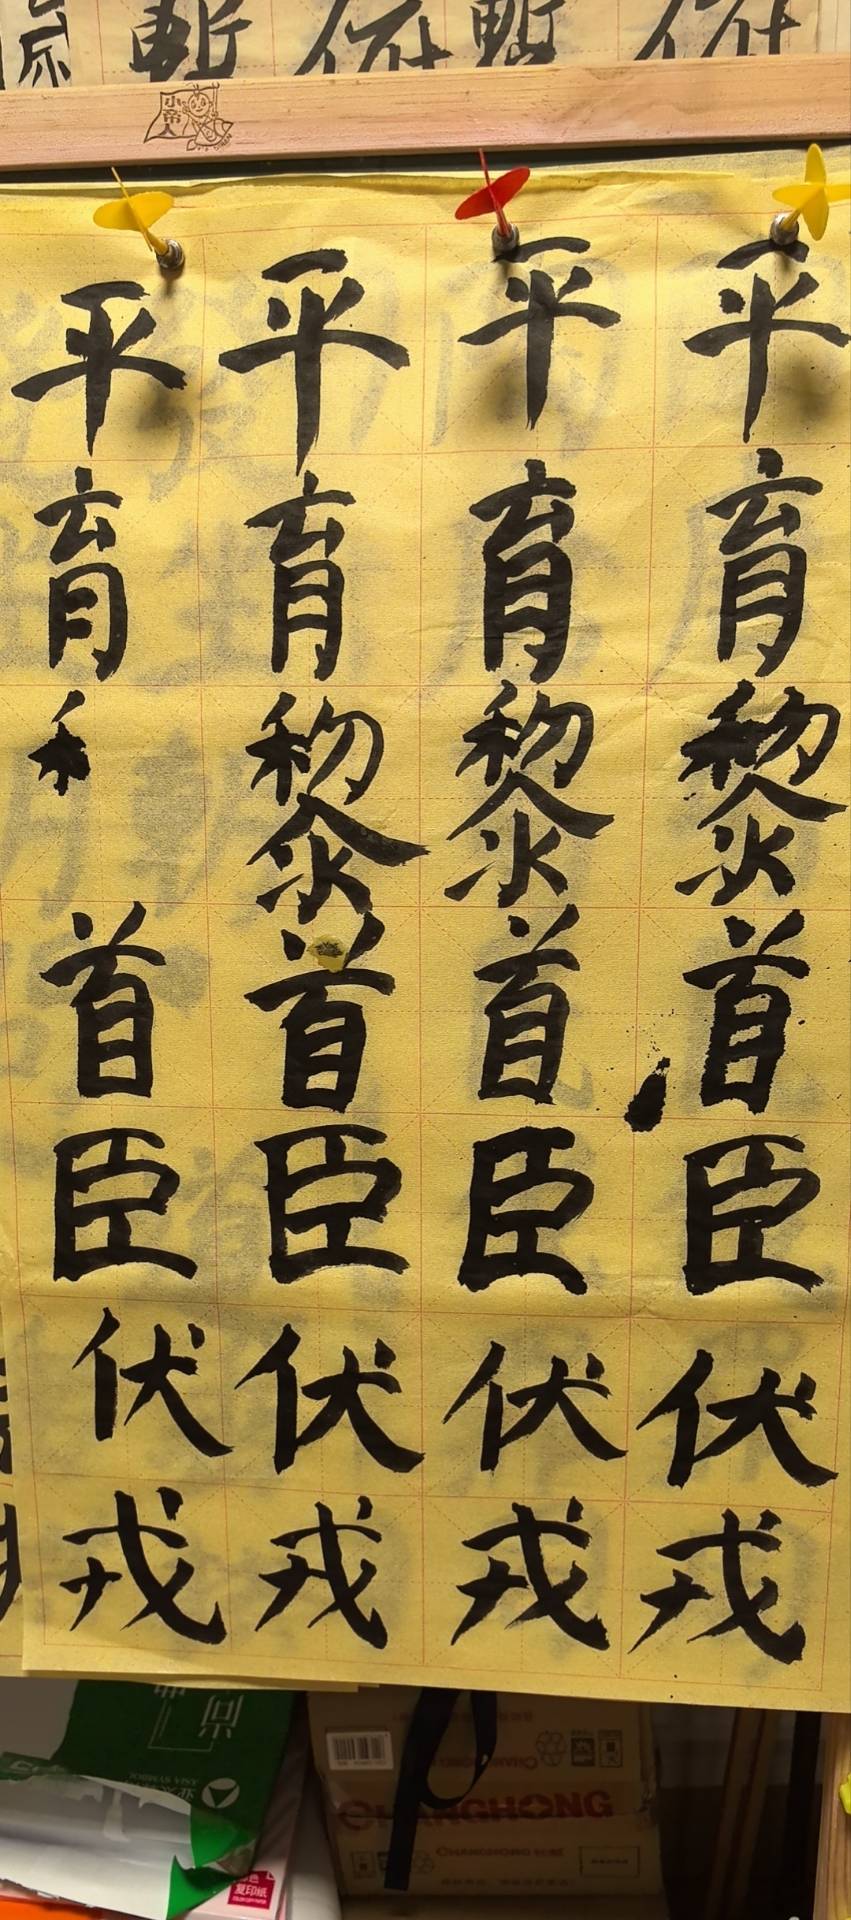 平育黎首臣伏戎
平育黎首臣伏戎
平育黎首臣伏戎
平育禾首臣伏戎
CHANGHONG
CHANGHONG
复印纸